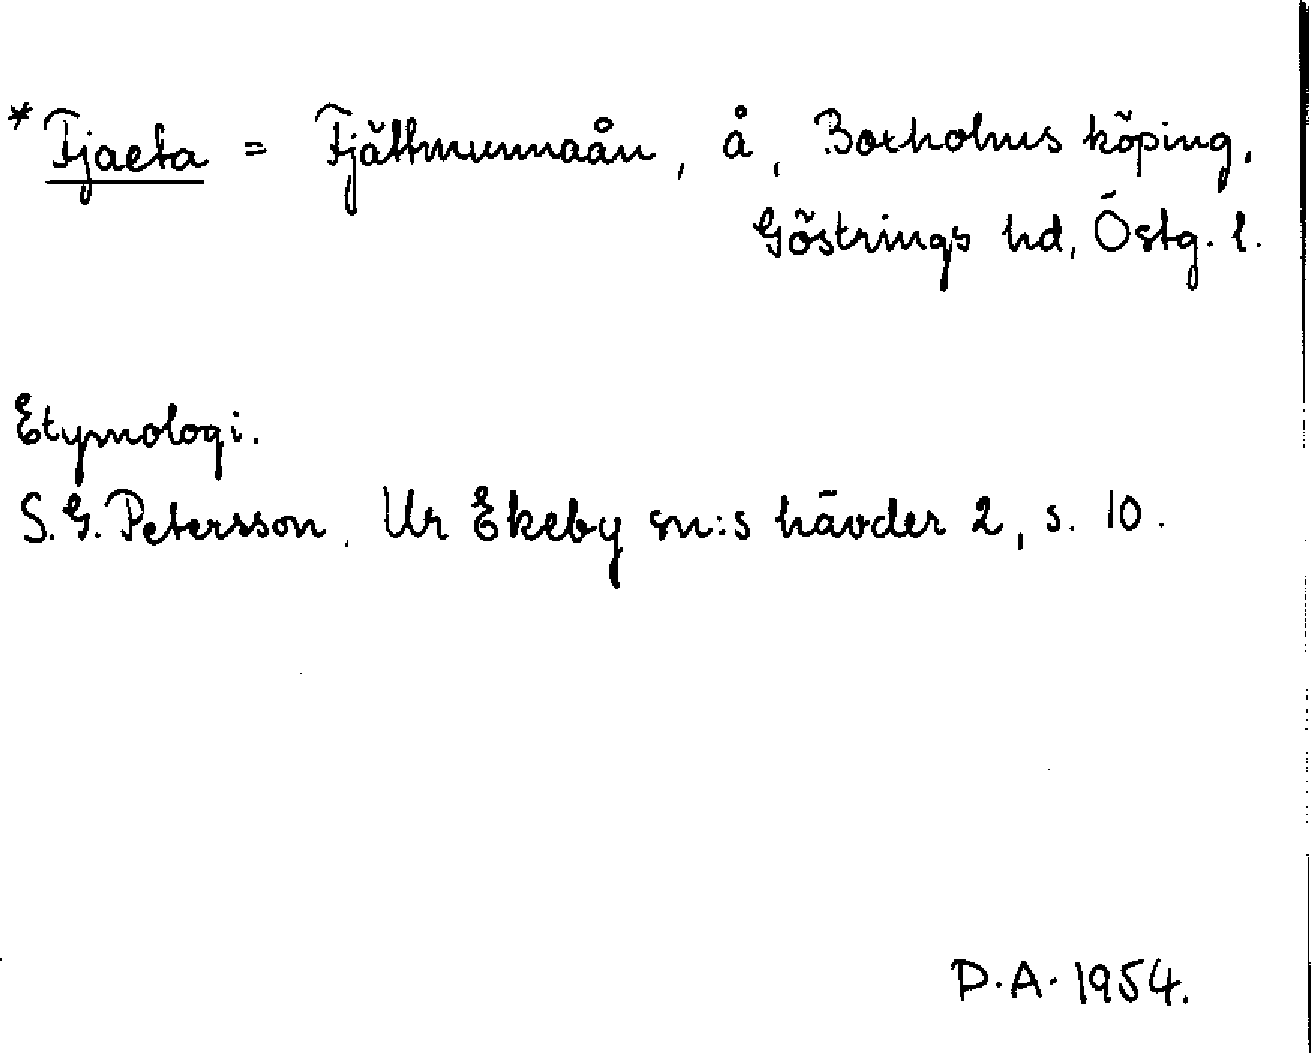 *Fjaeta = Fjättmunnaån, å, Boxholms köping,
Göstrings hd, Östg. l.
Etymologi.
S. G. Petersson, Ur Ekeby sn:s hävder 2, s. 10.
D.A. 1954.